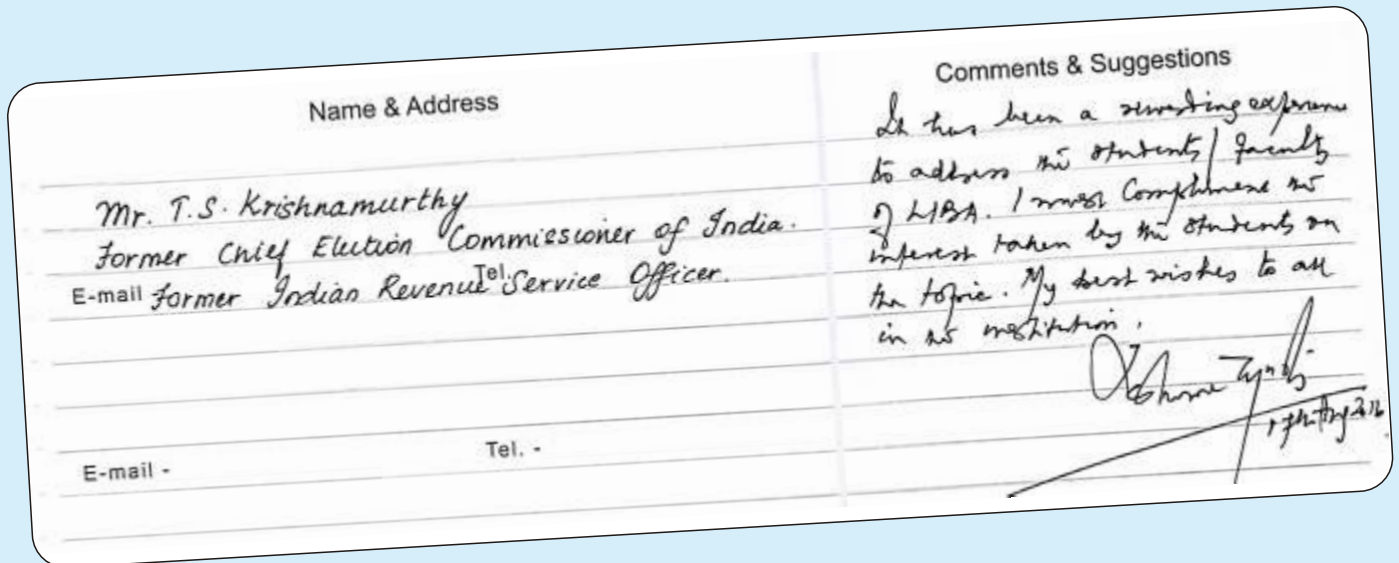 Name & Address
Mr. T.S. Krishnamurthy
Former Chief Election Commissioner of India.
E-mail Former Indian Revenue Tel. Service Officer.
E-mail -
Tel. -
Comments & Suggestions
It has been a rewarding experience
to address the students / faculty
of LIBA. I must compliment the
interest taken by the students on
the topic. My best wishes to all
in the institution.